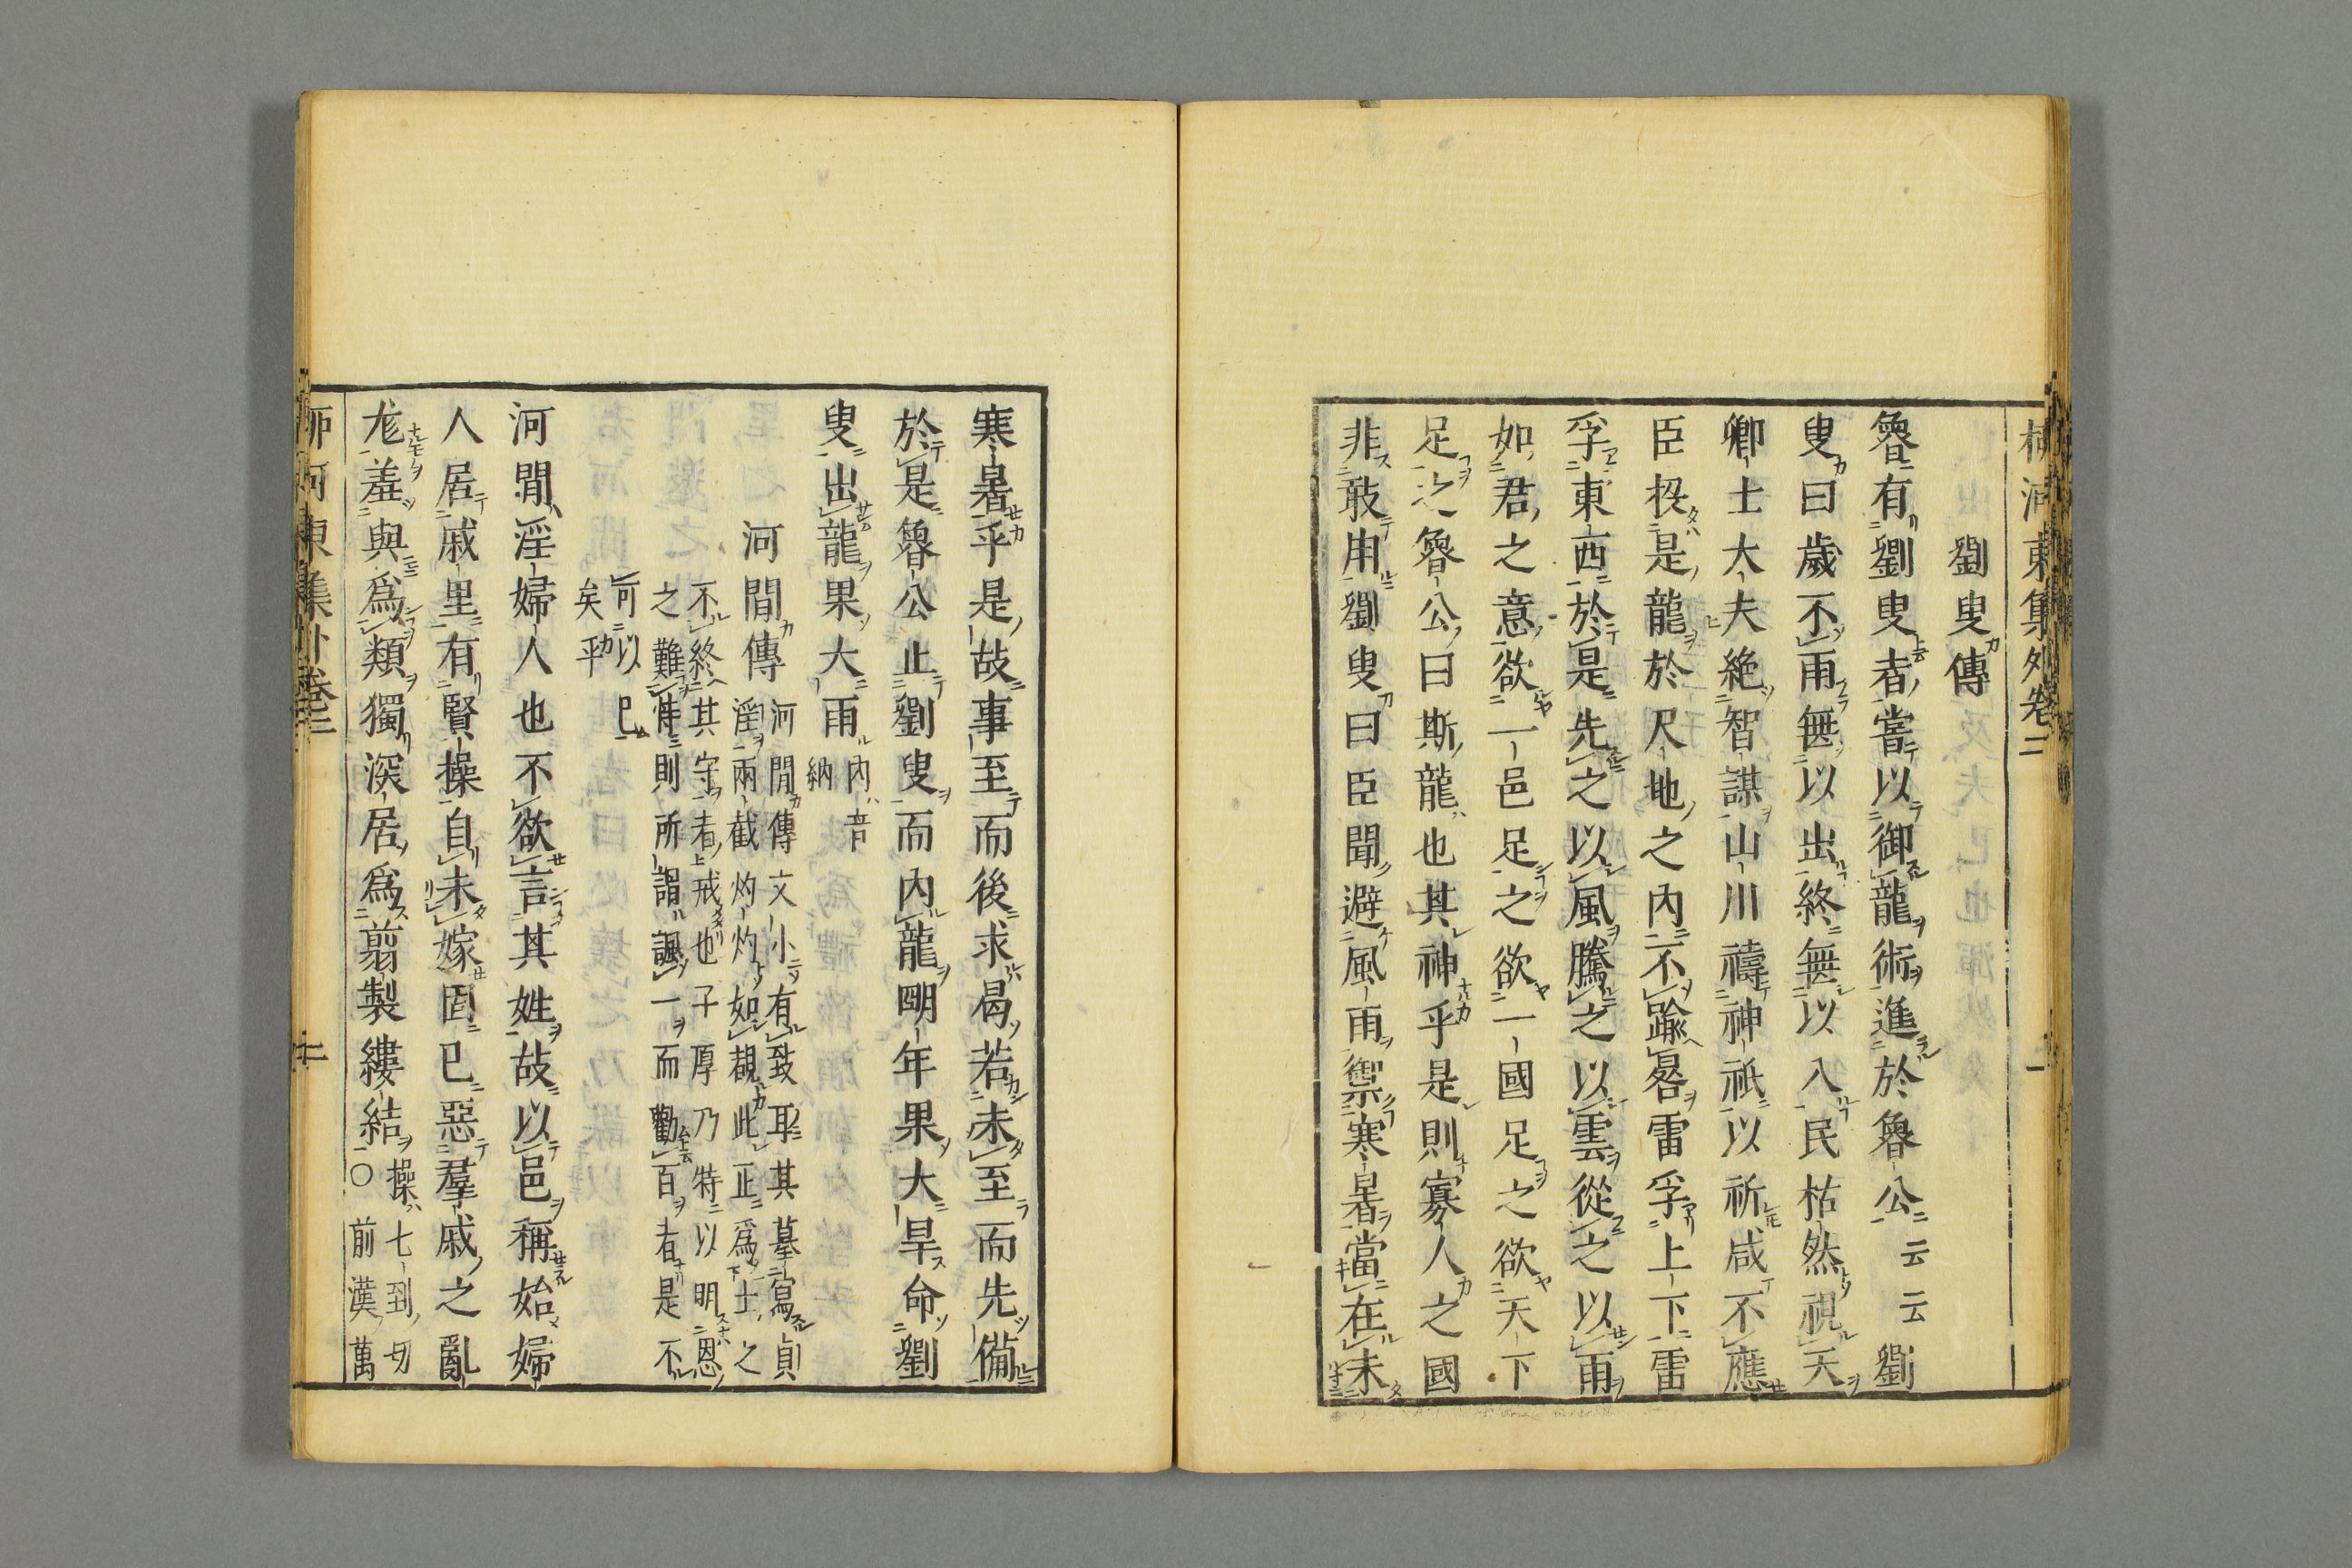 柳河東集外卷二
劉叟傳
魯有劉叟者嘗以御龍術進於魯公云云劉
叟曰歲不雨無以出終無以入民枯然視天
卿士大夫絶智謀山川禱神祇以祈咸不應
臣投是龍於尺地之内不踰晷雷孚上下雷
孚東西於是先之以風騰之以雲從之以雨
如君之意欲一邑足之欲一國足之欲天下
足之魯公曰斯龍也其神乎是則寡人之國
非敢用劉叟曰臣聞避風雨禦寒暑當在未
寒暑乎是故事至而後求曷若未至而先備
於是魯公止劉叟而內龍明年果大旱命劉
叟出龍果大雨內音納
河間傳河間傳文小有致耳其摹寫貞
淫兩截灼灼如覩此正爲士之
不終其守者戒也子厚乃特以明恩
之難恃則所謂諷一而勸百者是不
可以已
矣乎
河間淫婦人也不欲言其姓故以邑稱始婦
人居戚里有賢操自未嫁固已惡羣戚之亂
尨羞與爲類獨深居爲翦製縷結操七到切
○前漢萬
柳河東集外卷二